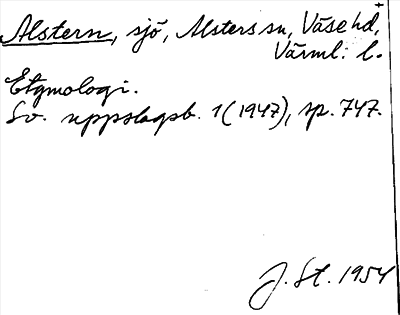 Alstern, sjö, Alsters sn, Väse hd,
Värml. l.
Etymologi.
Sv. uppslagsb. 1 (1947), sp. 747.
J. St. 1954